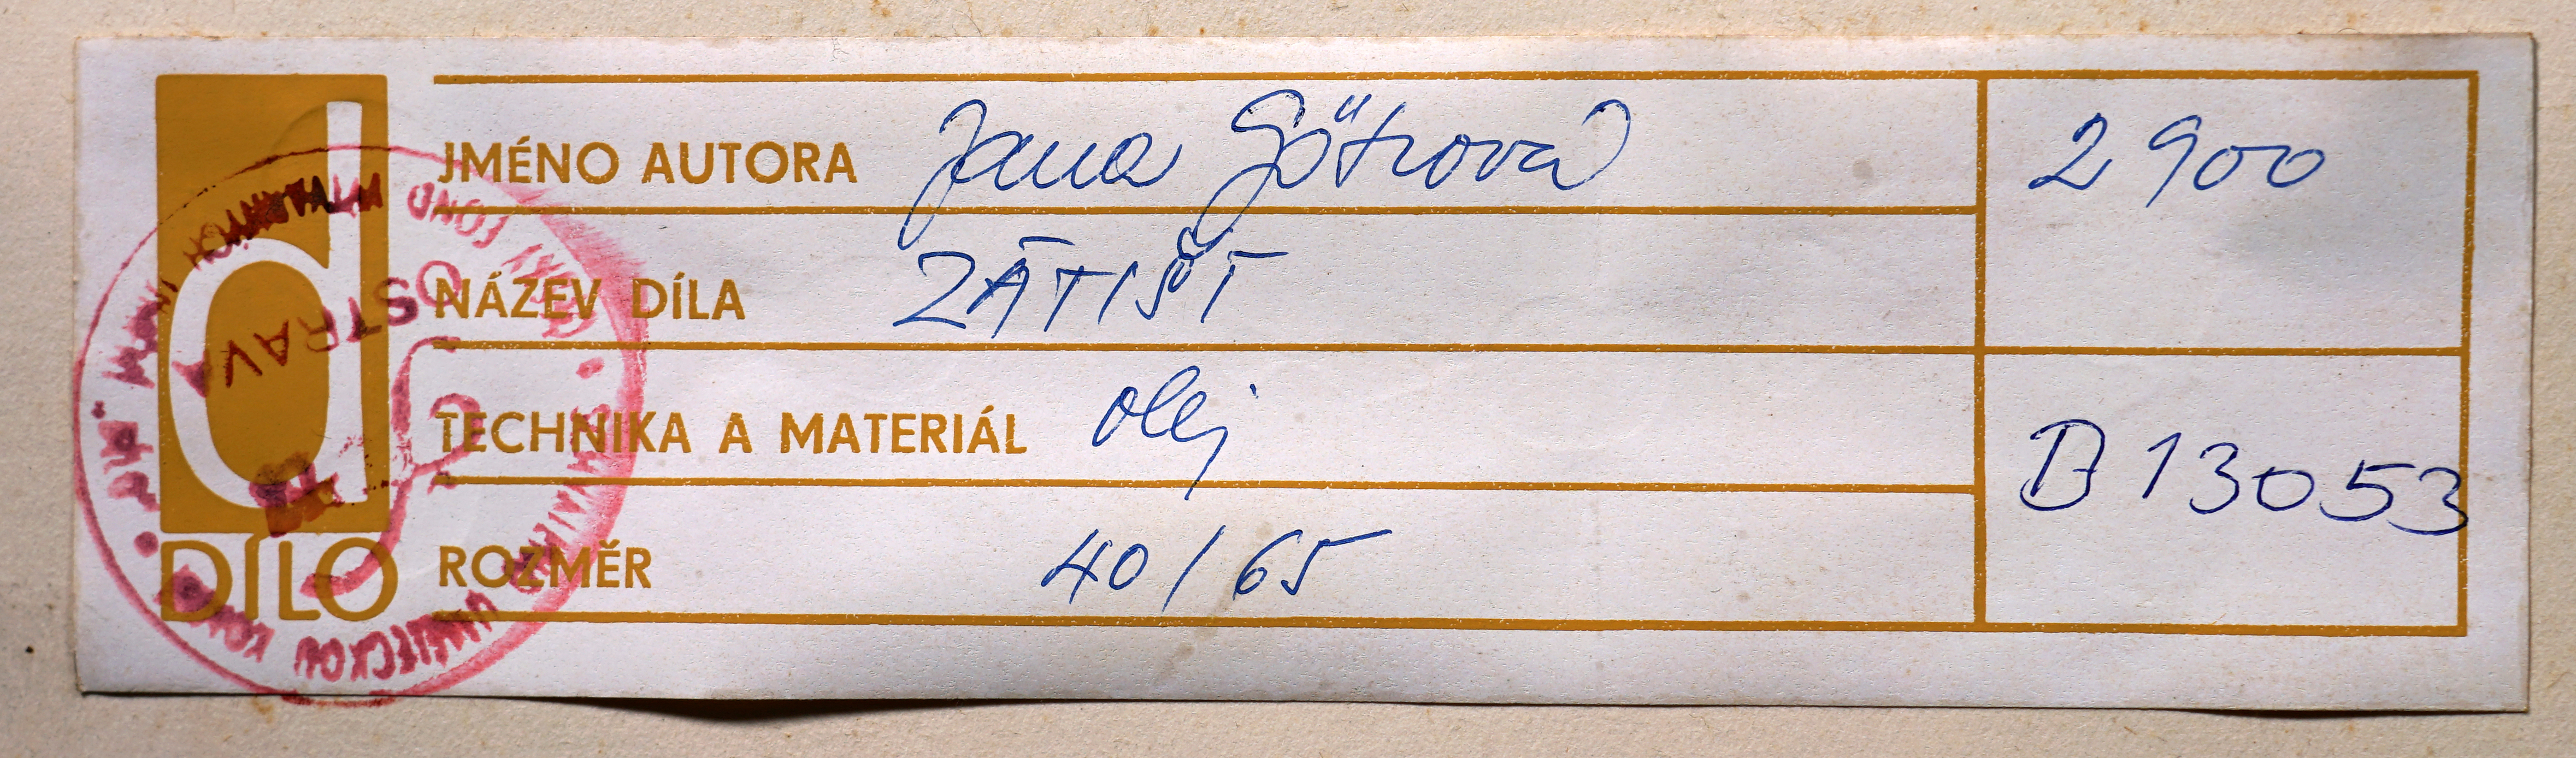 d
DÍLO
JMÉNO AUTORA Jana Götzová
2 900
NÁZEV DÍLA ZÁTIŠÍ
TECHNIKA A MATERIÁL olej
B 13053
ROZMĚR 40/65
FOND VÝTVARNÝCH UMĚNÍ
OSTRAVA